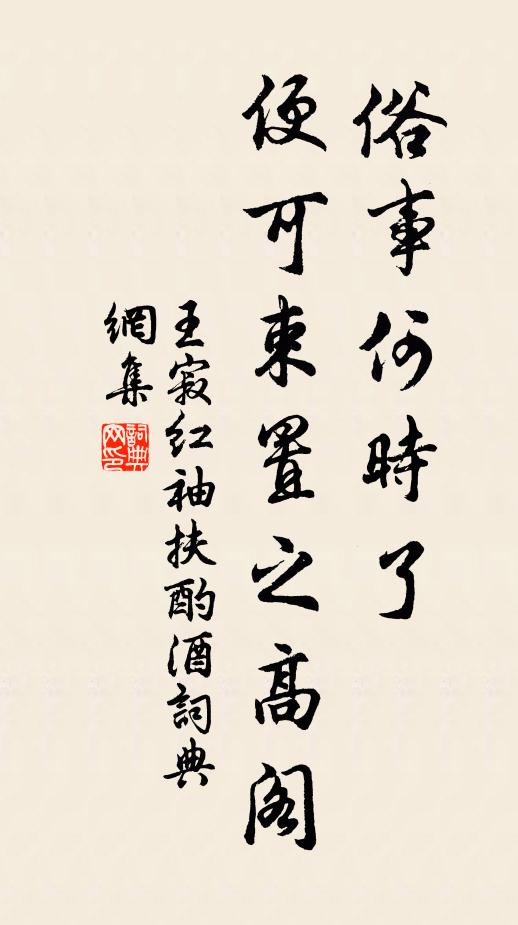 俗事何時了
便可束置之高阁
王寂红袖扶酌酒詞典
網集
詞典
网印